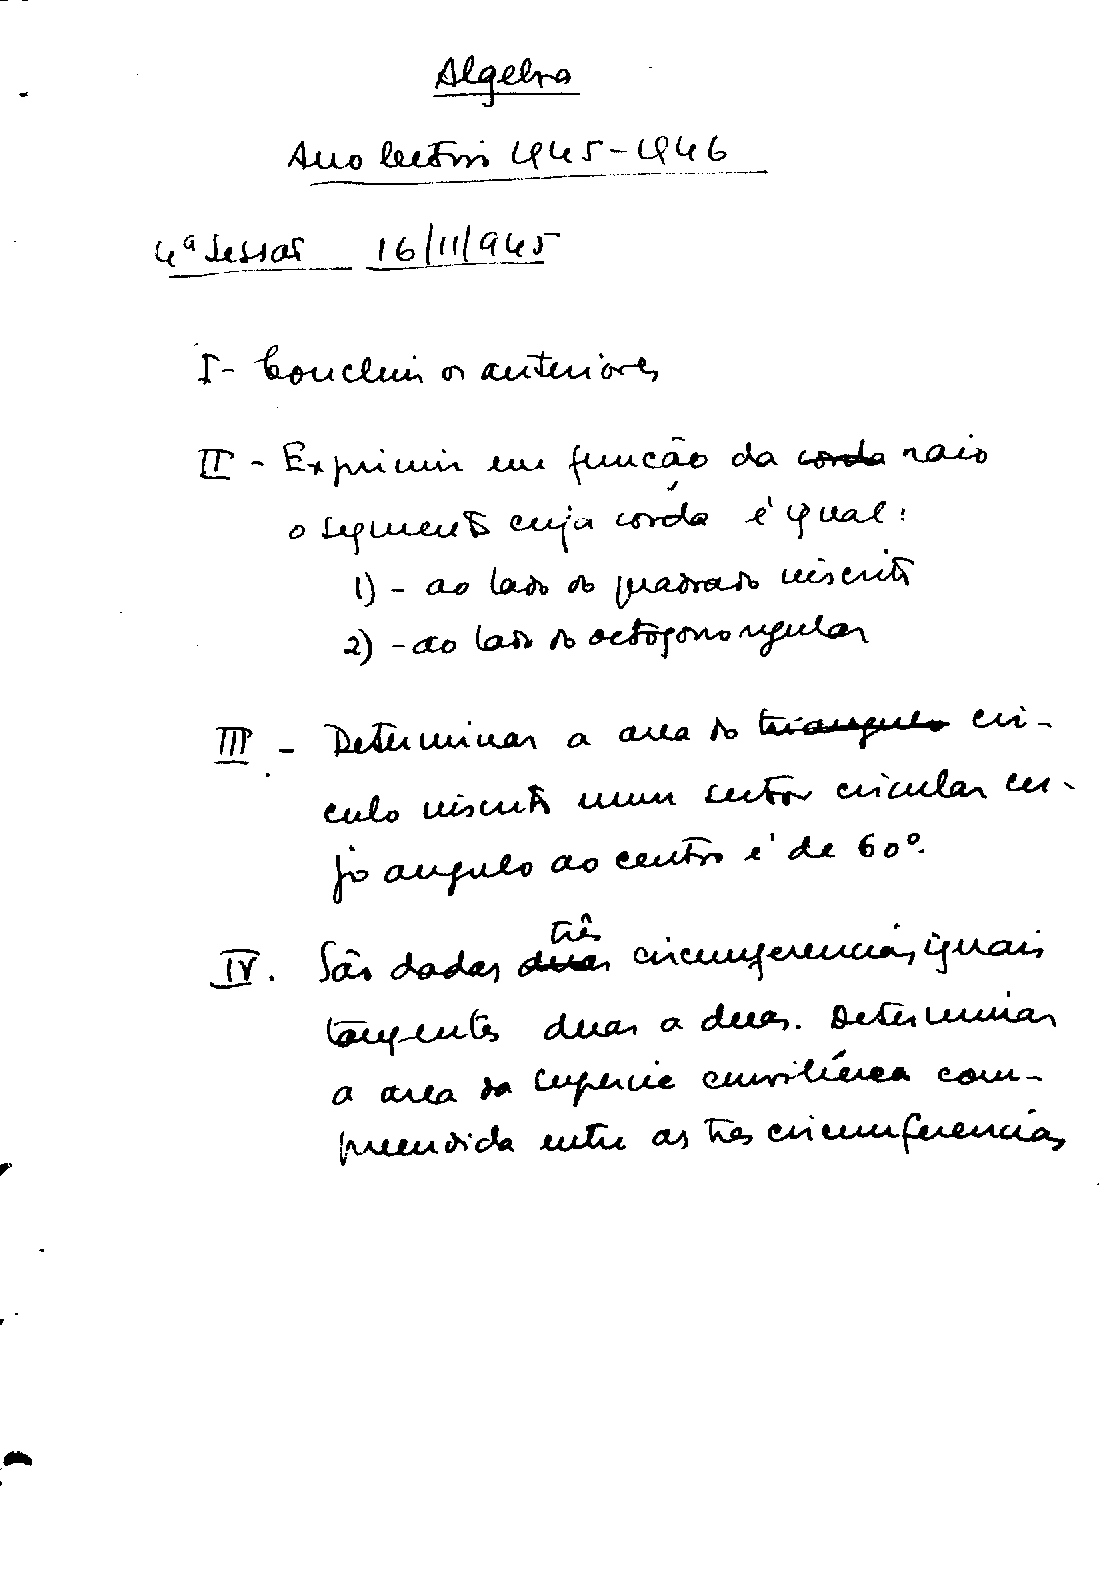 Algebra
Ano lectivo 1945-1946
4ª Sessão 16/11/945
I - Concluir os anteriores
II - Exprimir em função da corda raio
o segmento cuja corda é igual:
1) - ao lado do quadrado inscrito
2) - ao lado do octógono regular
III - Determinar a area do triangulo cir-
culo inscrito num sector circular cu-
jo angulo ao centro é de 60º.
três
IV. São dadas duas circumferencias iguais
tangentes duas a duas. Determinar
a area da superficie curvilínea com-
preendida entre as três circumferencias